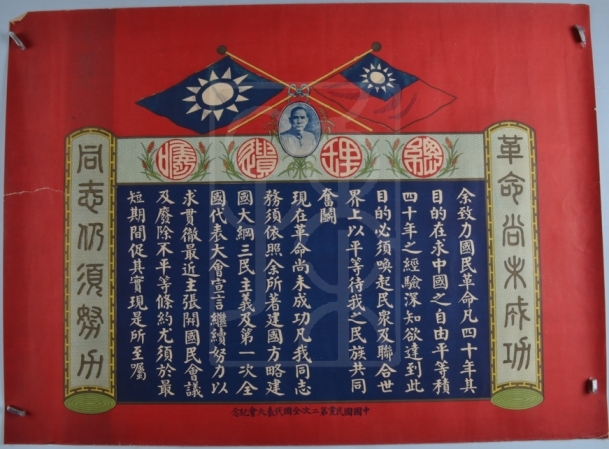 總理遺囑
革命尚未成功
余致力國民革命凡四十年其
目的在求中國之自由平等積
四十年之經驗深知欲達到此
目的必須喚起民眾及聯合世
界上以平等待我之民族共同
奮鬭
現在革命尚未成功凡我同志
務須依照余所著建國方略建
國大綱三民主義及第一次全
國代表大會宣言繼續努力以
求貫徹最近主張開國民會議
及廢除不平等條約尤須於最
短期間促其實現是所至囑
同志仍須努力
中國國民黨第二次全國代表大會紀念